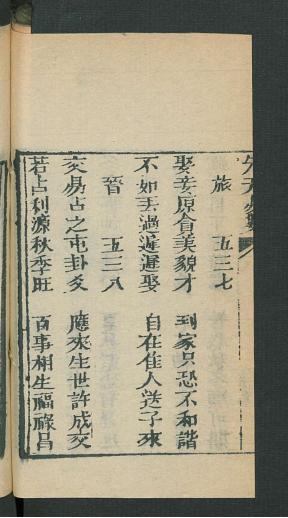 旅 五三七
娶妾原貪美貌才 到家只恐不和諧
不如丟過遲遲娶 自在佳人送子來
晉 五三八
交易占之屯卦爻 應來生世許成交
若占利源秋季旺 百事相生福祿昌